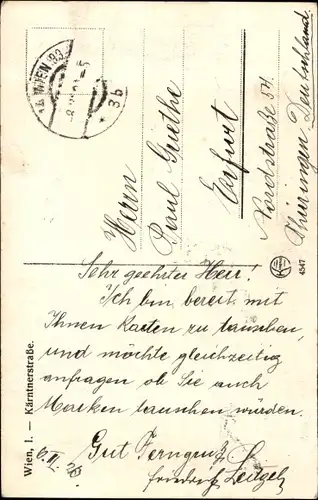 WIEN
3b
Herrn
Paul Guethe
Erfurt
Nordstraße 57.
Thüringen Deutschland.
Sehr geehrter Herr!
Ich bin bereit mit
Ihnen Karten zu tauschen,
und möchte gleichzeitig
anfragen ob Sie auch
Marken tauschen würden.
Gut Ferngruß
Friedrich Leitgeb
Wien, I. — Kärntnerstraße.
4547